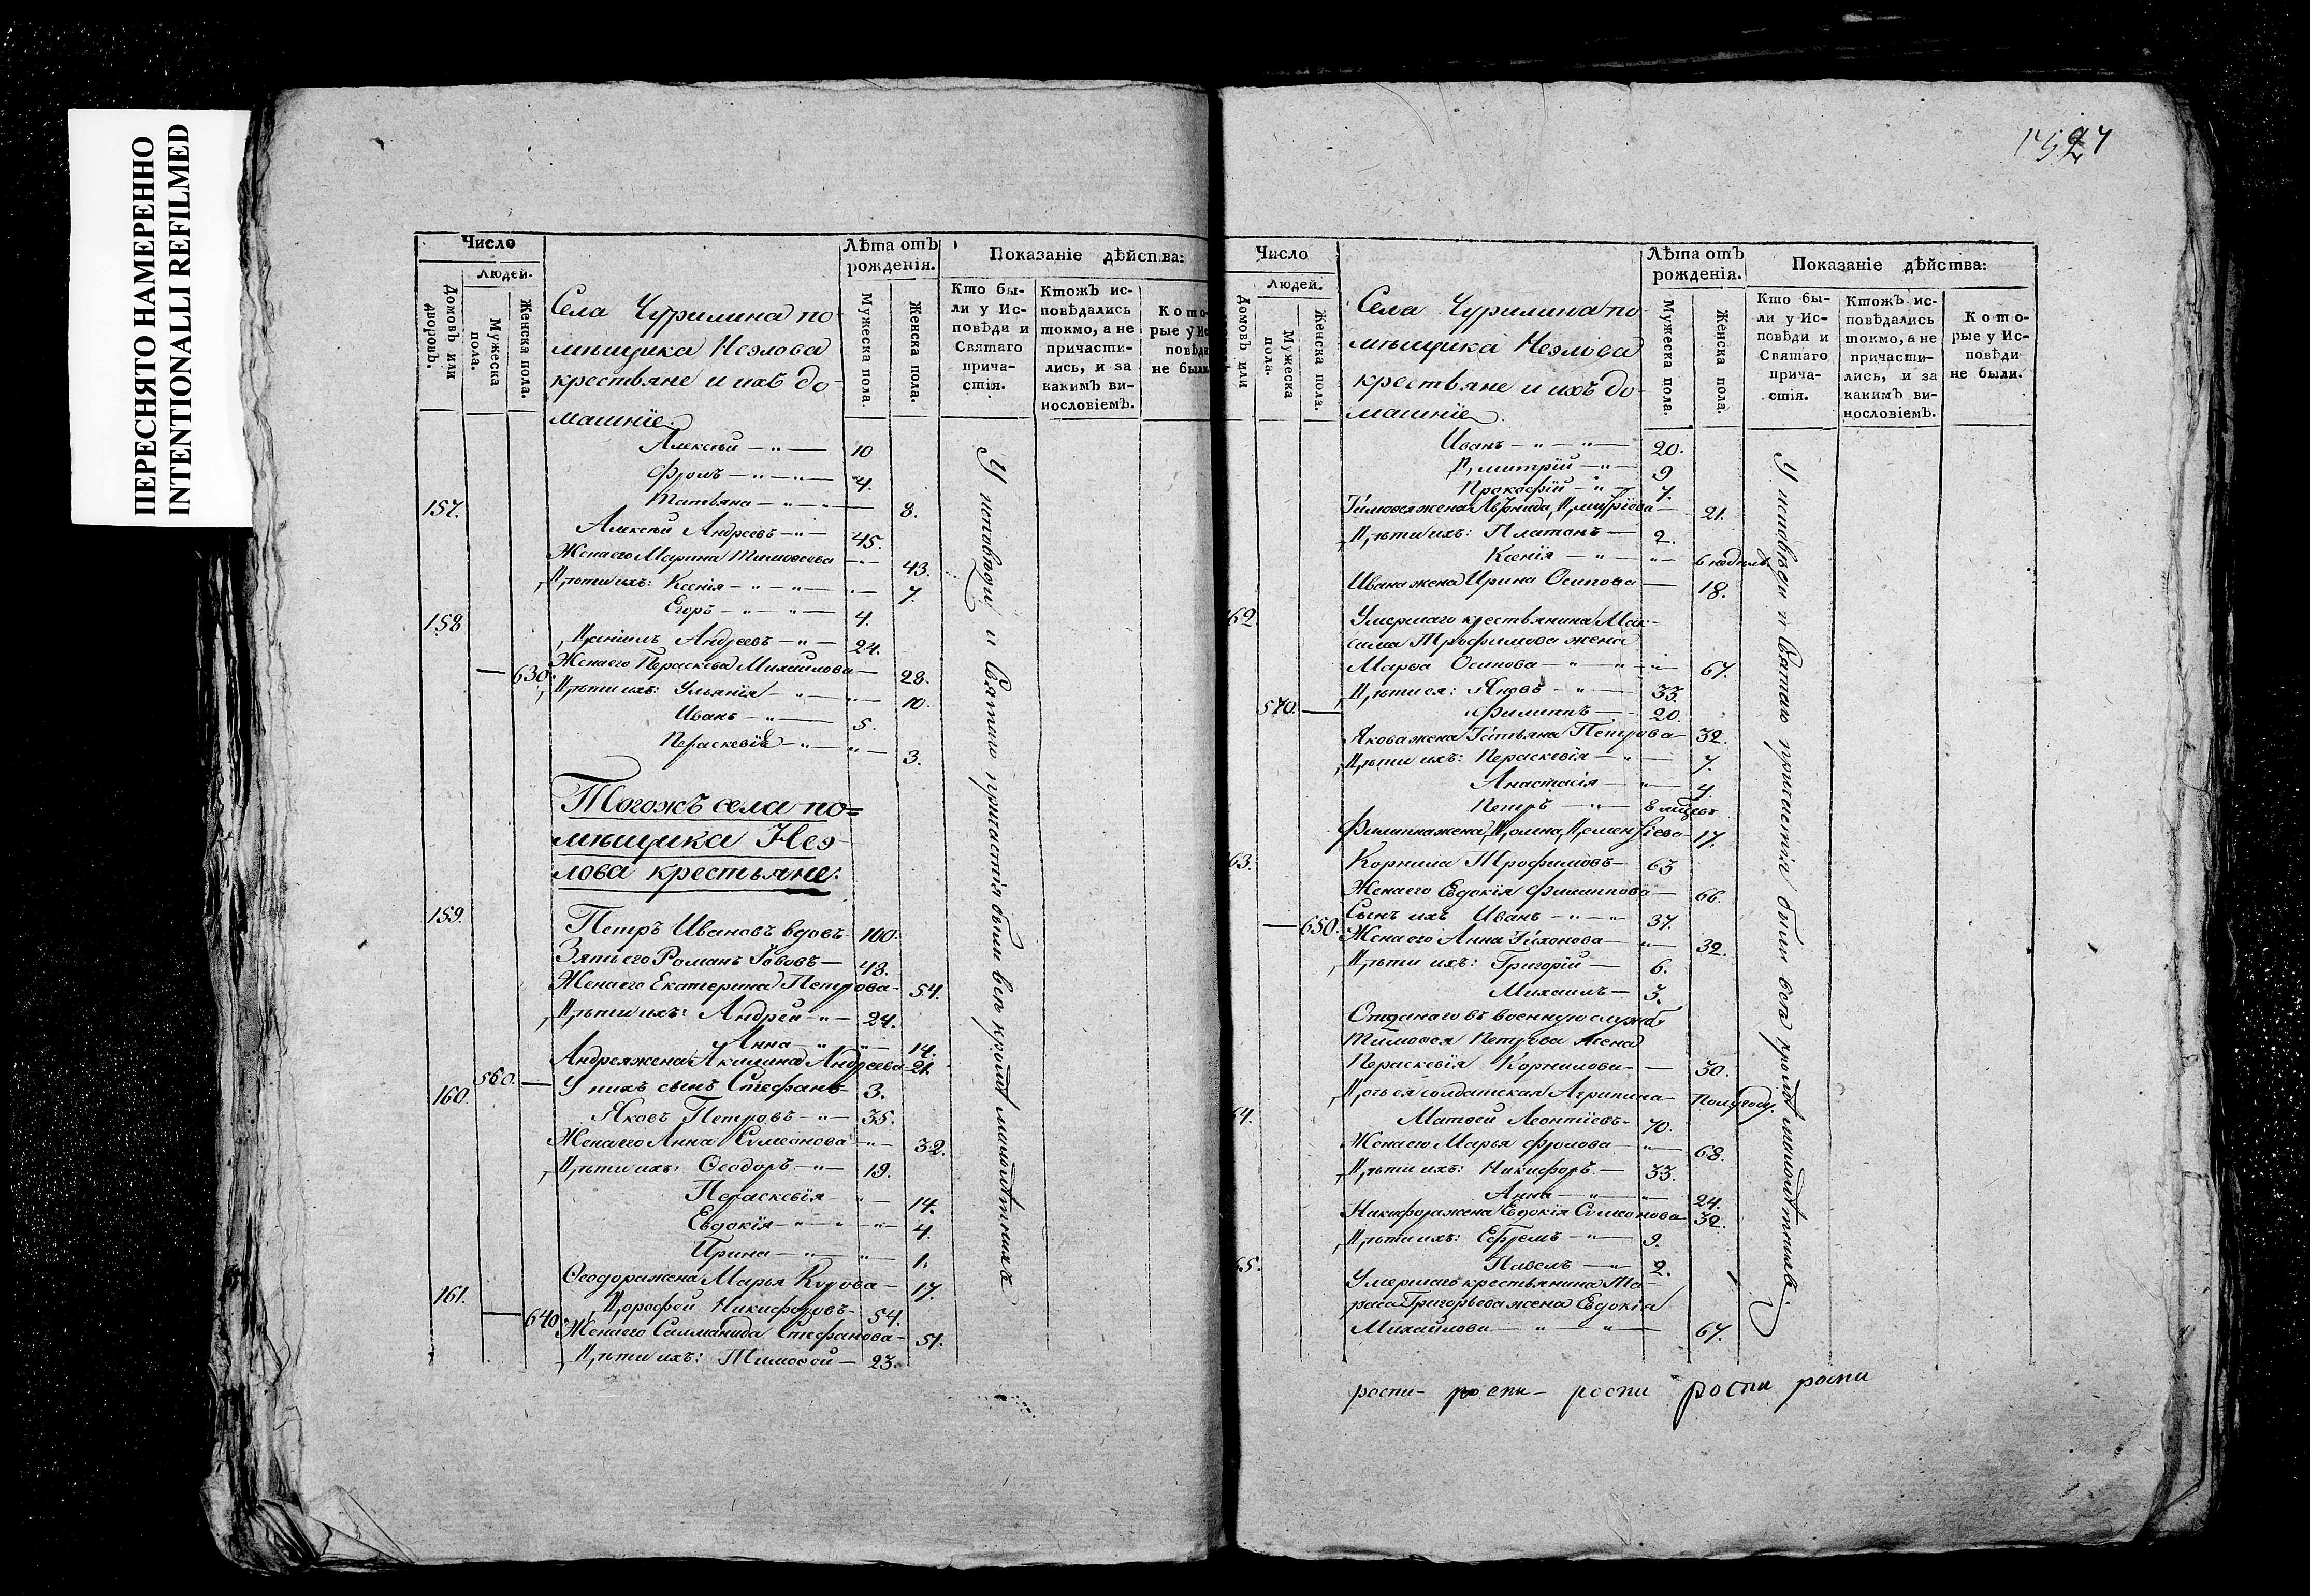 ПЕРЕСНЯТО НАМЕРЕННО
INTENTIONALLI REFILMED
Число
Людей.
Домовъ или дворовъ.
Мужеска пола.
Женска пола.
Лѣта отъ рожденія.
Мужеска пола.
Женска пола.
Показаніе дѣйства:
Кто были у Исповѣди и Святаго причастія.
Ктожъ исповѣдались токмо, а не причастились, и за какимъ винословіемъ.
Которые у Исповѣди не были
Села Чурилина по-
мѣщика Неэлова
крестьяне и ихъ до-
машніе.
Алексѣй 10
Фролъ 4.
Татьяна 8.
157. Алексѣй Андреевъ 45.
Жена его Марина Тимоѳеева 43.
Дѣти ихъ: Ксенія 7.
Егоръ 4.
158 Даніилъ Андреевъ 24.
Жена его Параскева Михайлова 28.
630. Дѣти ихъ: Ульянія 10.
Иванъ 5.
Параскевія 3.
Тогожъ села по=
мѣщика Неэ-
лова крестьяне:
159. Петръ Ивановъ вдовъ 100.
Зять его Романъ 48.
Жена его Екатерина Петрова 54.
Дѣти ихъ: Андрей 24.
Анна 14.
Андрея жена Акилина Андреева 21.
560. У нихъ сынъ Стефанъ 3.
160. Яковъ Петровъ 35.
Жена его Анна Симеонова 32.
Дѣти ихъ: Ѳеодоръ 19.
Параскевія 14.
Евдокія 4.
Ирина 1.
Ѳеодора жена Марья 17.
161. Дорофей Никифоровъ 54.
640. Жена его Саломанида Стефанова 51.
Дѣти ихъ: Тимоѳей 23.
У исповѣди и Святаго причастія были всѣ кромѣ малолѣтнихъ
Число
Людей.
Домовъ или
Мужеска пола.
Женска пола.
Лѣта отъ рожденія.
Мужеска пола.
Женска пола.
Показаніе дѣйства:
Кто были у Исповѣди и Святаго причастія.
Ктожъ исповѣдались токмо, а не причастились, и за какимъ винословіемъ.
Которые у Исповѣди не были.
Села Чурилина по-
мѣщика Неэлова
крестьяне и ихъ до-
машніе.
Иванъ 20.
Дмитрій 9
Прокофій 7.
Тимоѳея жена Леонида Дмитріева 21.
Дѣти ихъ: Платонъ 2.
Ксенія
Ивана жена Ирина Осипова 18.
62. Умершаго крестьянина Мак-
сима Трофимова жена
Марѳа Осипова 67.
Дѣти ея: Яковъ 33.
570. Филиппъ 20.
Якова жена Татьяна Петрова 32.
Дѣти ихъ: Параскевія 7.
Анастасія 4
Петръ 8
Филиппа жена Домна Дементіева 17.
63. Корнила Трофимовъ 63
Жена его Евдокія Филиппова 66.
Сынъ ихъ Иванъ 37.
650. Жена его Анна Тихонова 32.
Дѣти ихъ: Григорій 6.
Михаилъ 3.
Отданаго въ военную службу
Тимоѳея Петрова жена
Параскевія Корнилова 30.
Дочь ея солдатская Агрипина полугоду.
4. Матвей Леонтіевъ 70.
Жена его Марья Фролова 68.
Дѣти ихъ: Никифоръ 33.
Анна 24.
Никифора жена Евдокія Симеонова 32.
Дѣти ихъ: Ефремъ 9.
Павелъ 2.
65. Умершаго крестьянина Та-
раса Григорьева жена Евдокія
Михайлова 67.
У исповѣди и Святаго причастія были всѣ кромѣ малолѣтнихъ.
роспи- роспи- роспи роспи роспи